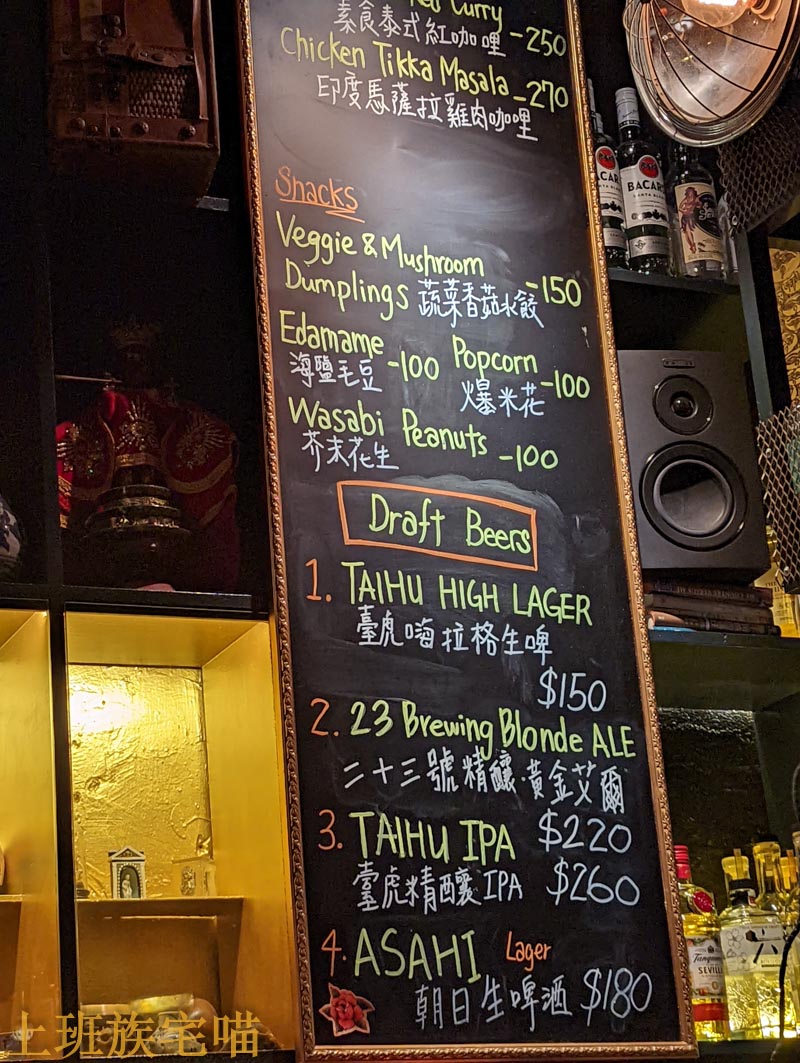 Red Curry
素食泰式紅咖哩 -250
Chicken Tikka Masala -270
印度馬薩拉雞肉咖哩
Snacks
Veggie & Mushroom
Dumplings 蔬菜香菇水餃 -150
Edamame -100
海鹽毛豆
Popcorn -100
爆米花
Wasabi Peanuts -100
芥末花生
Draft Beers
1. TAIHU HIGH LAGER
臺虎嗨拉格生啤
$150
2. 23 Brewing Blonde ALE
二十三號精釀·黃金艾爾
$220
3. TAIHU IPA
臺虎精釀IPA $260
4. ASAHI Lager
朝日生啤酒 $180
BACARDI
Tanqueray
SEVILLA
六
上班族宅喵